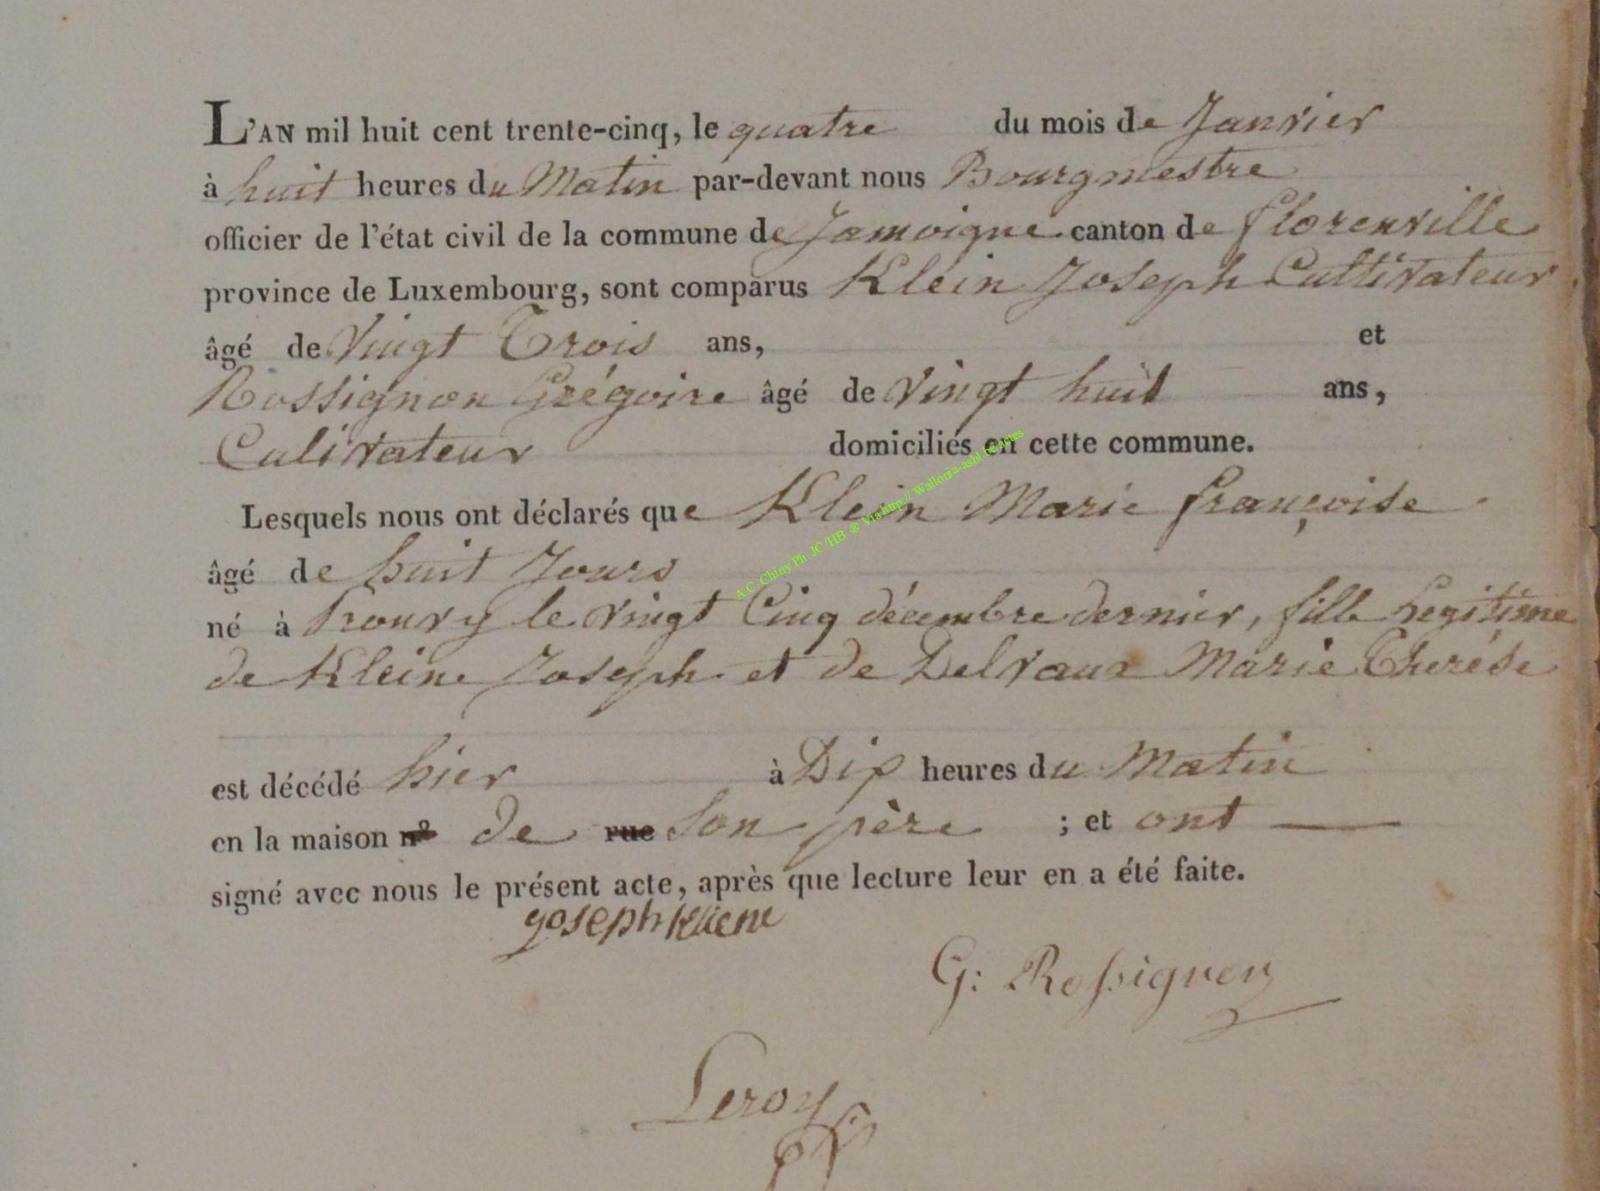 L'AN mil huit cent trente-cinq, le quatre du mois de Janvier
à huit heures du Matin par-devant nous Bourgmestre
officier de l'état civil de la commune de Jamoigne canton de florenville
province de Luxembourg, sont comparus Klein Joseph Cultivateur
âgé de Vingt Trois ans, et
Rossignon Grégoire âgé de Vingt huit ans,
Culivateur domiciliés en cette commune.
Lesquels nous ont déclarés que Klein Marie françoise
âgé de huit Jours
né à Prouvy le vingt Cinq décembre dernier, fille Legitime
de Kleine Joseph et de Delvaux Marie Therése
est décédé hier à Dix heures du Matin
en la maison nº de rue Son père ; et ont
signé avec nous le présent acte, après que lecture leur en a été faite.
joseph Kliene
G: Rossignon
Leroy
A.C. Chiny Ph JC HB @ Via http:// Wallonia-asbl